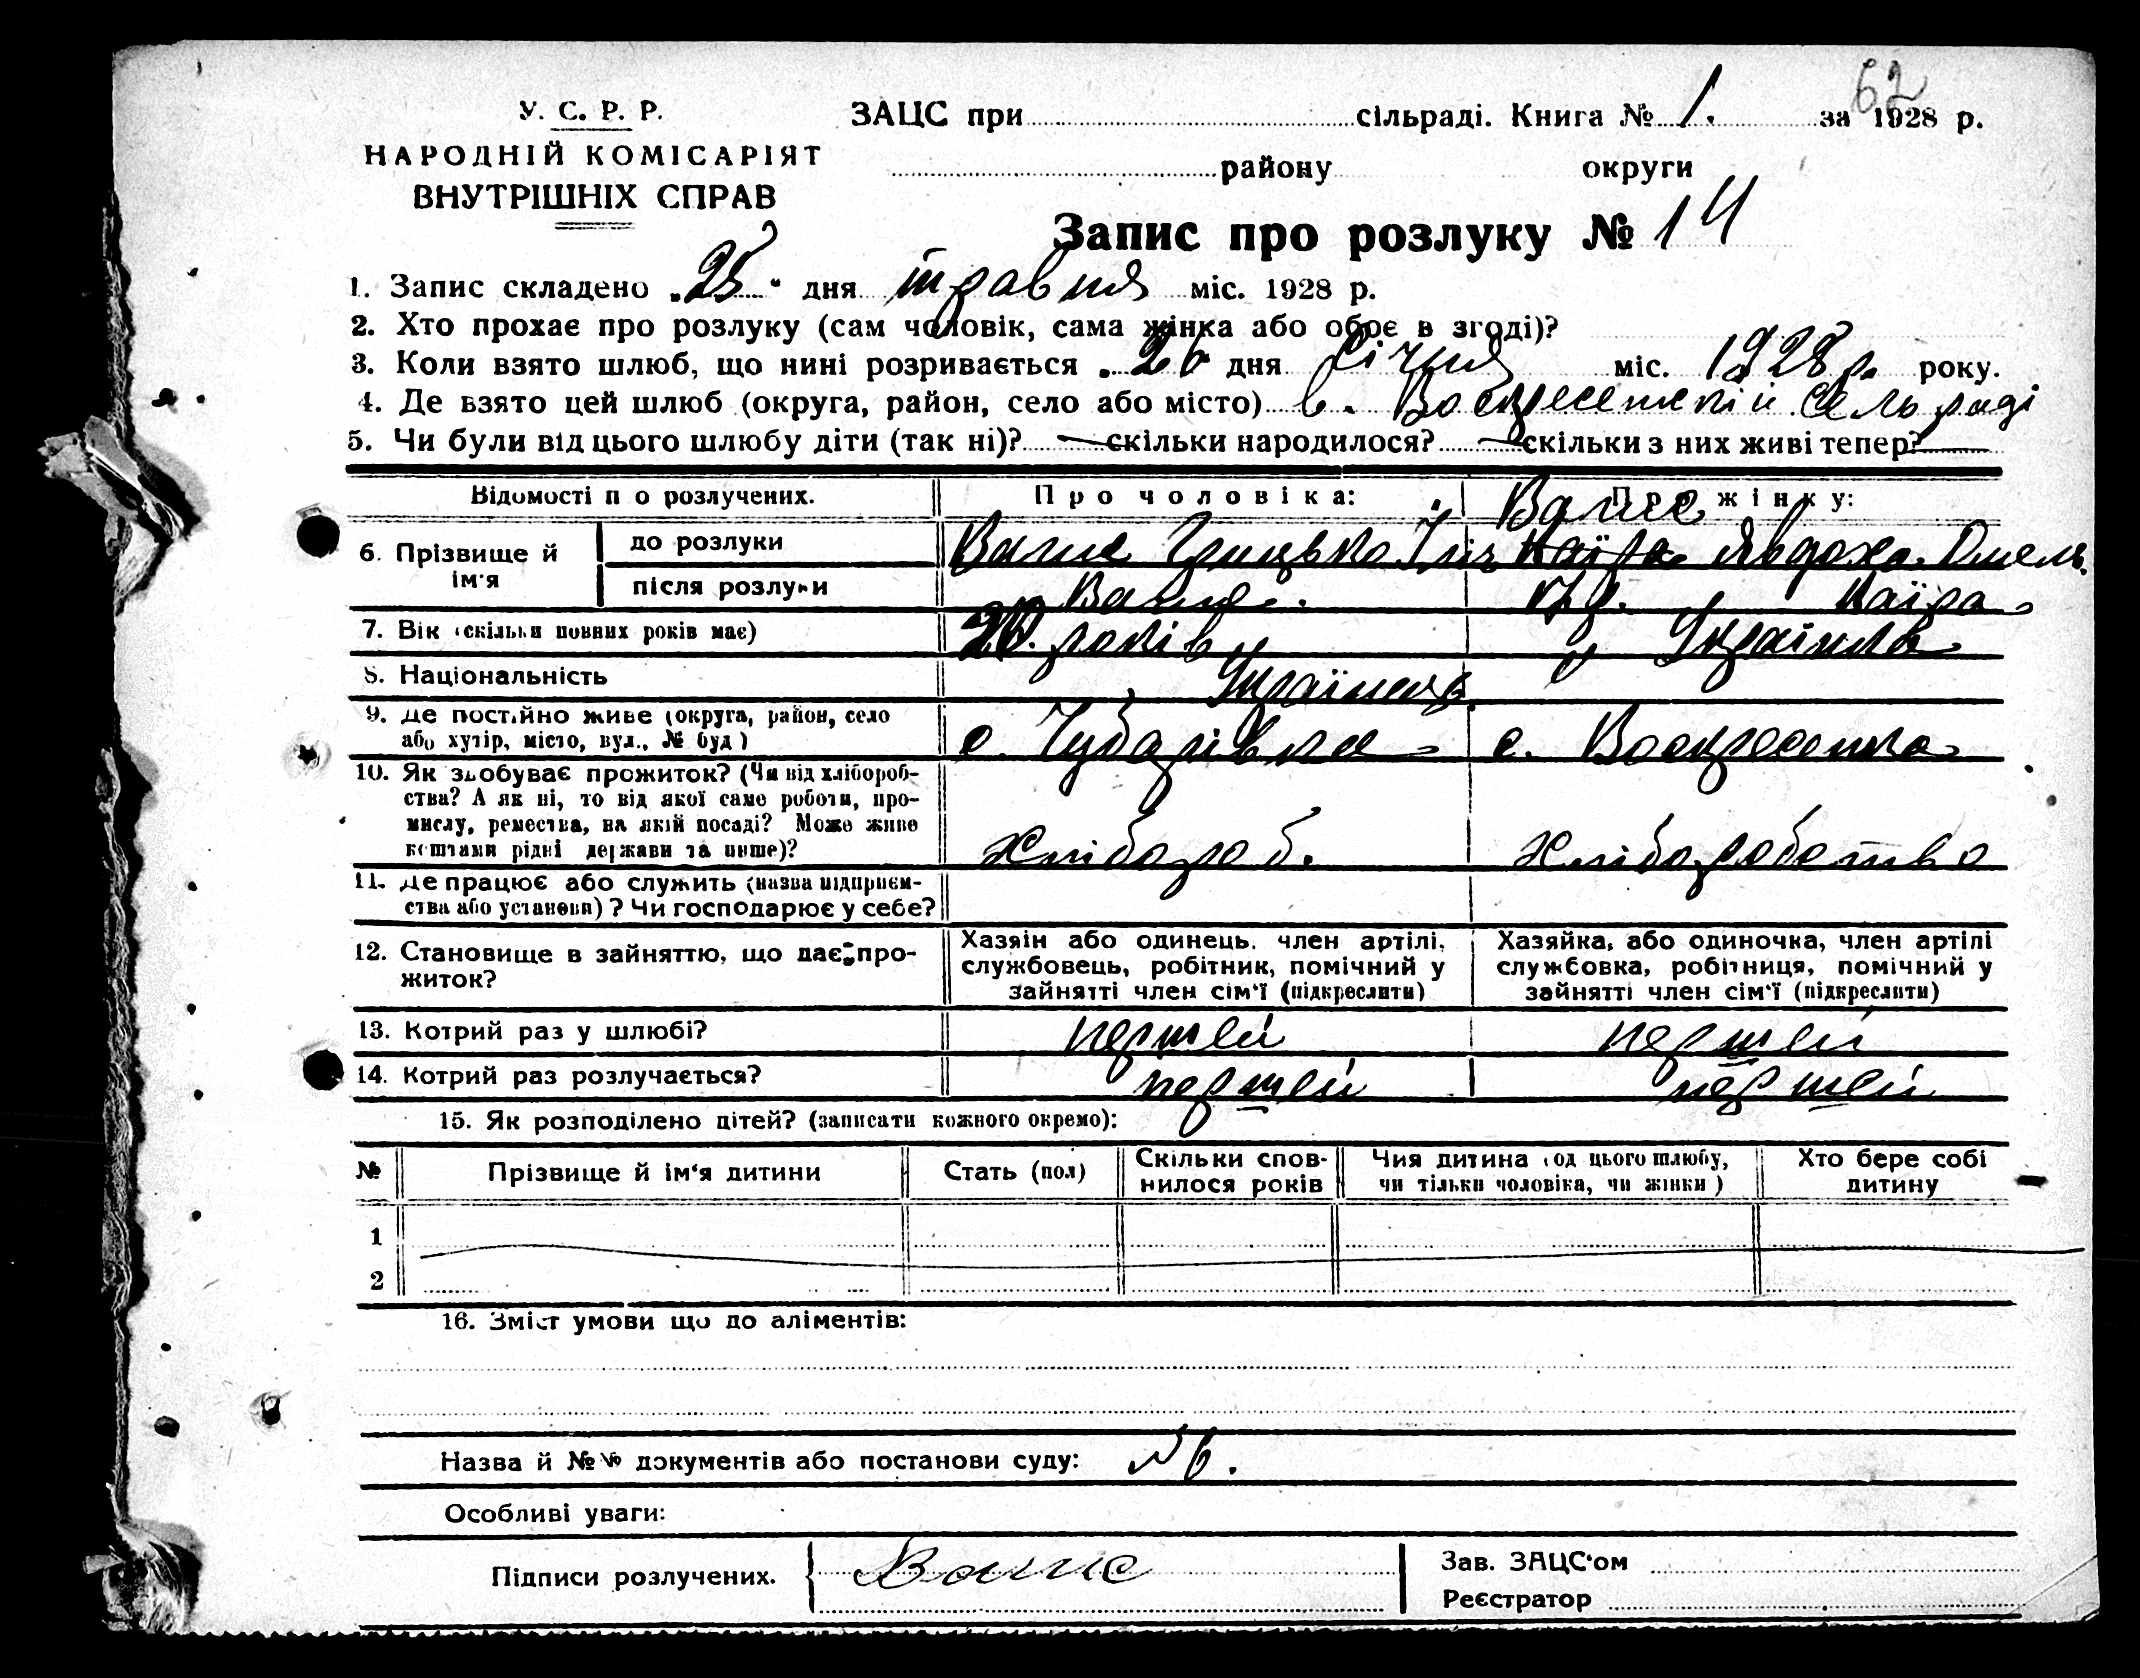 62
У. С. Р. Р.
НАРОДНІЙ КОМІСАРІЯТ
ВНУТРІШНІХ СПРАВ
ЗАЦС при сільраді. Книга № 1. за 1928 р.
району округи
Запис про розлуку № 14
1. Запис складено „25“ дня травня міс. 1928 р.
2. Хто прохає про розлуку (сам чоловік, сама жінка або обоє в згоді)?
3. Коли взято шлюб, що нині розривається „26 дня Січня міс. 1928 р. року.
4. Де взято цей шлюб (округа, район, село або місто) в. Воскресенскій сельраді
5. Чи були від цього шлюбу діти (так ні)? — скільки народилося? — скільки з них живі тепер? —
Відомості п о розлучених. Про чоловіка: Про жінку:
6. Прізвище й ім'я
до розлуки Грицько Явдоха
після розлуки Каїра
7. Вік (скільки повних років має) років Українка
8. Національність Українець
9. Де постійно живе (округа, район, село або хутір, місто, вул., № буд) с. Чубарівка с. Воскресенка
10. Як здобуває прожиток? (Чи від хлібороб-
ства? А як ні, то від якої саме роботи, про-
мислу, ремества, на якій посаді? Може живе
коштами рідні держави та инше)? хлібороб. хліборобство
11. Де працює або служить (назва підприєм-
ства або установи)? Чи господарює у себе?
12. Становище в зайняттю, що дає про-
житок?
Хазяін або одинець, член артілі,
службовець, робітник, помічний у
зайнятті член сім'ї (підкреслити)
Хазяйка, або одиночка, член артілі
службовка, робітниця, помічний у
зайнятті член сім'ї (підкреслити)
13. Котрий раз у шлюбі? першей першей
14. Котрий раз розлучається? першей першей
15. Як розподілено дітей? (записати кожного окремо):
№ Прізвище й ім'я дитини Стать (пол) Скільки спов-
нилося років Чия дитина (од цього шлюбу,
чи тільки чоловіка, чи жінки) Хто бере собі
дитину
1
2
16. Зміст умови що до аліментів:
Назва й №№ документів або постанови суду: №6.
Особливі уваги:
Підписи розлучених.
Зав. ЗАЦС'ом
Реєстратор